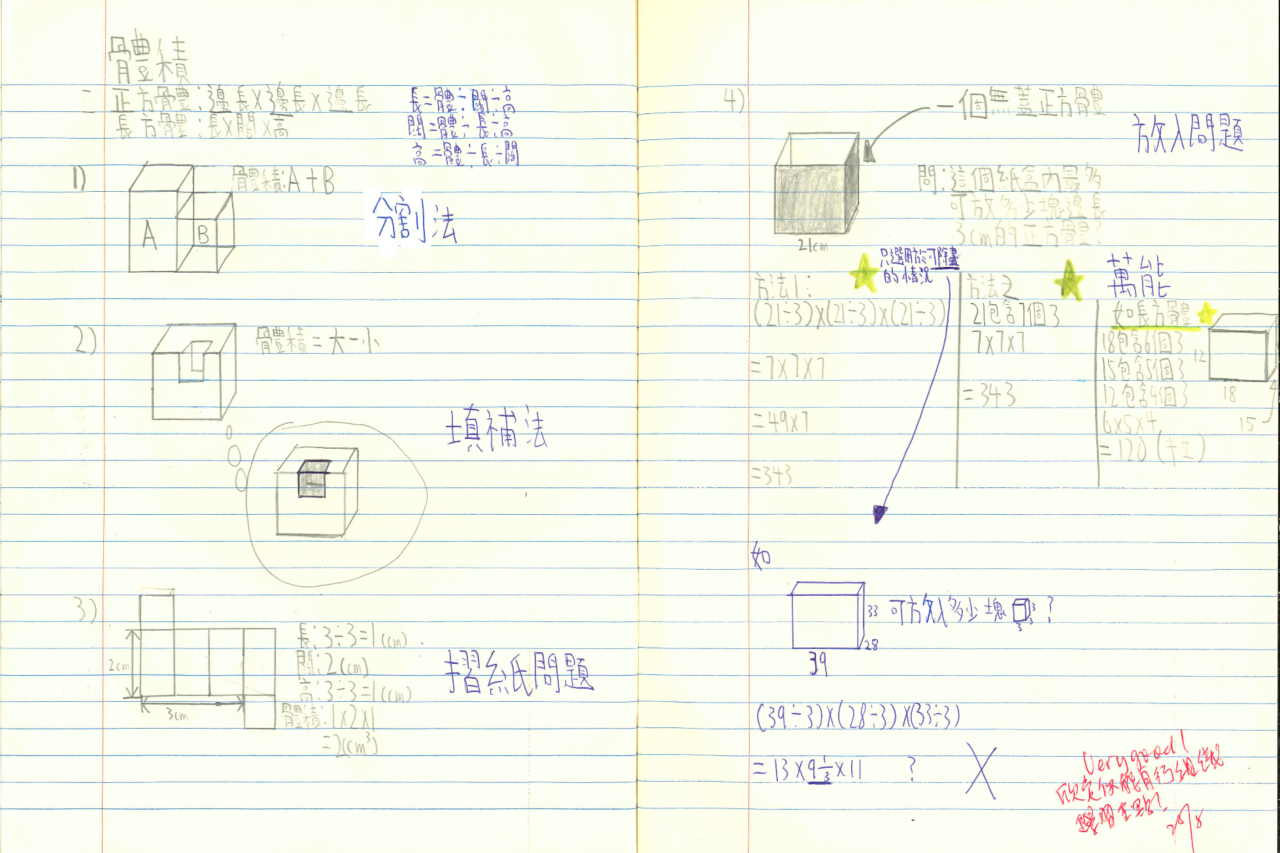 體積
二 正方體體:邊長×邊長×邊長
長方體:長×闊×高
長=體÷闊÷高
闊=體÷長÷高
高=體÷長÷闊
1)
體積:A+B
A
B
分割法
2)
體積=大-小
填補法
3)
2cm
3cm
長:3÷3=1(cm)
闊:2(cm)
高:3÷3=1(cm)
體積:1×2×1
=2(cm³)
摺紙問題
4)
一個無蓋正方體
放入問題
21cm
問:這個紙盒內最多
可放多少塊邊長
3cm的正方體?
只選用於可除盡
的情況
方法1:
(21÷3)×(21÷3)×(21÷3)
=7×7×7
=49×7
=343
方法2
21包含7個3
7×7×7
=343
萬能
如長方體
18包含6個3
15包含5個3
12包含4個3
6×5×4
=120(塊)
12
18
15
如
33
28
39
可放入多少塊
3
3
3
?
(39÷3)×(28÷3)×(33÷3)
=13×9⅓×11 ?
Very good!
欣賞你能自行組織